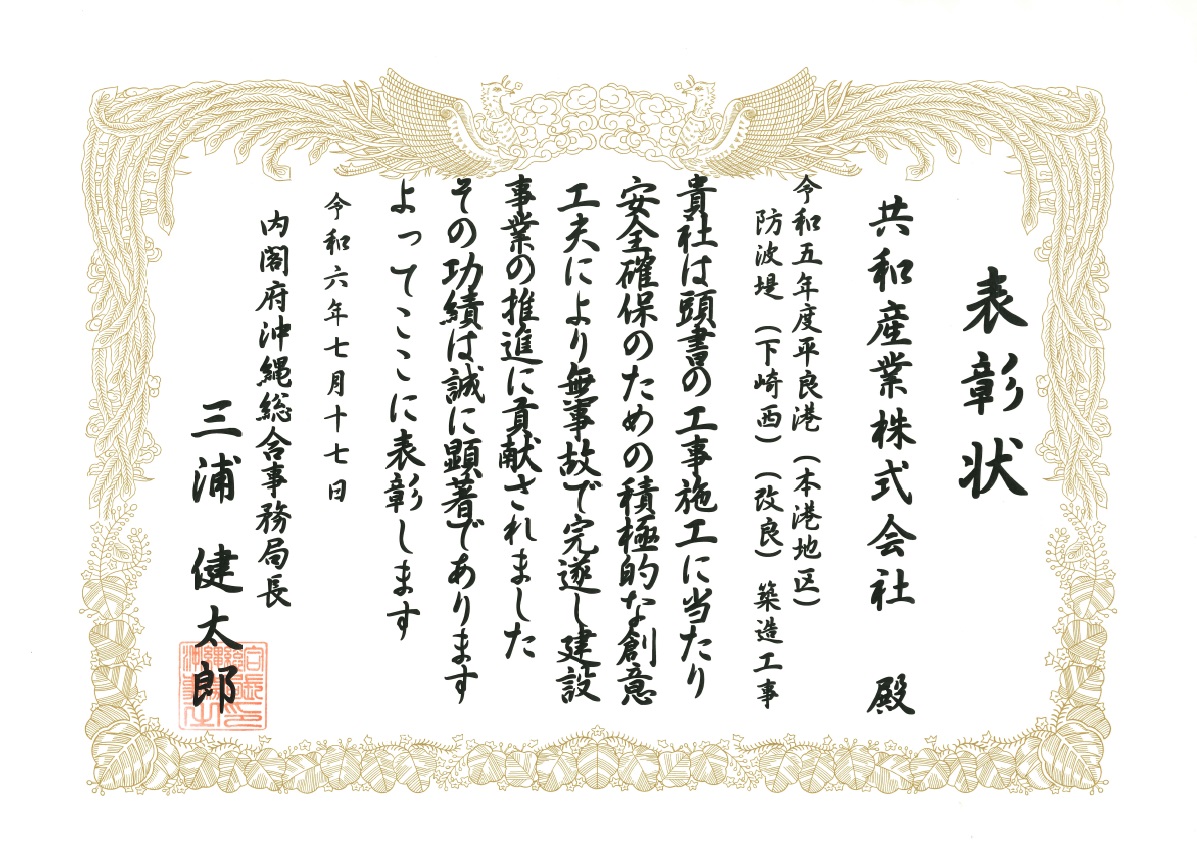 表彰状
共和産業株式会社 殿
令和五年度平良港（本港地区）
防波堤（下崎西）（改良）築造工事
貴社は頭書の工事施工に当たり
安全確保のための積極的な創意
工夫により無事故で完遂し建設
事業の推進に貢献されました
その功績は誠に顕著であります
よってここに表彰します
令和六年七月十七日
内閣府沖縄総合事務局長
三浦 健太郎